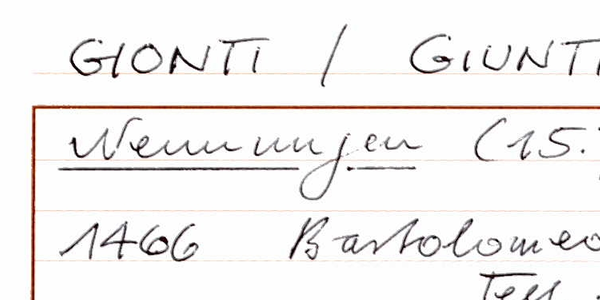 GIONTI / GIUNTI
Nennungen (15.
1466 Bartolomeo
Tess